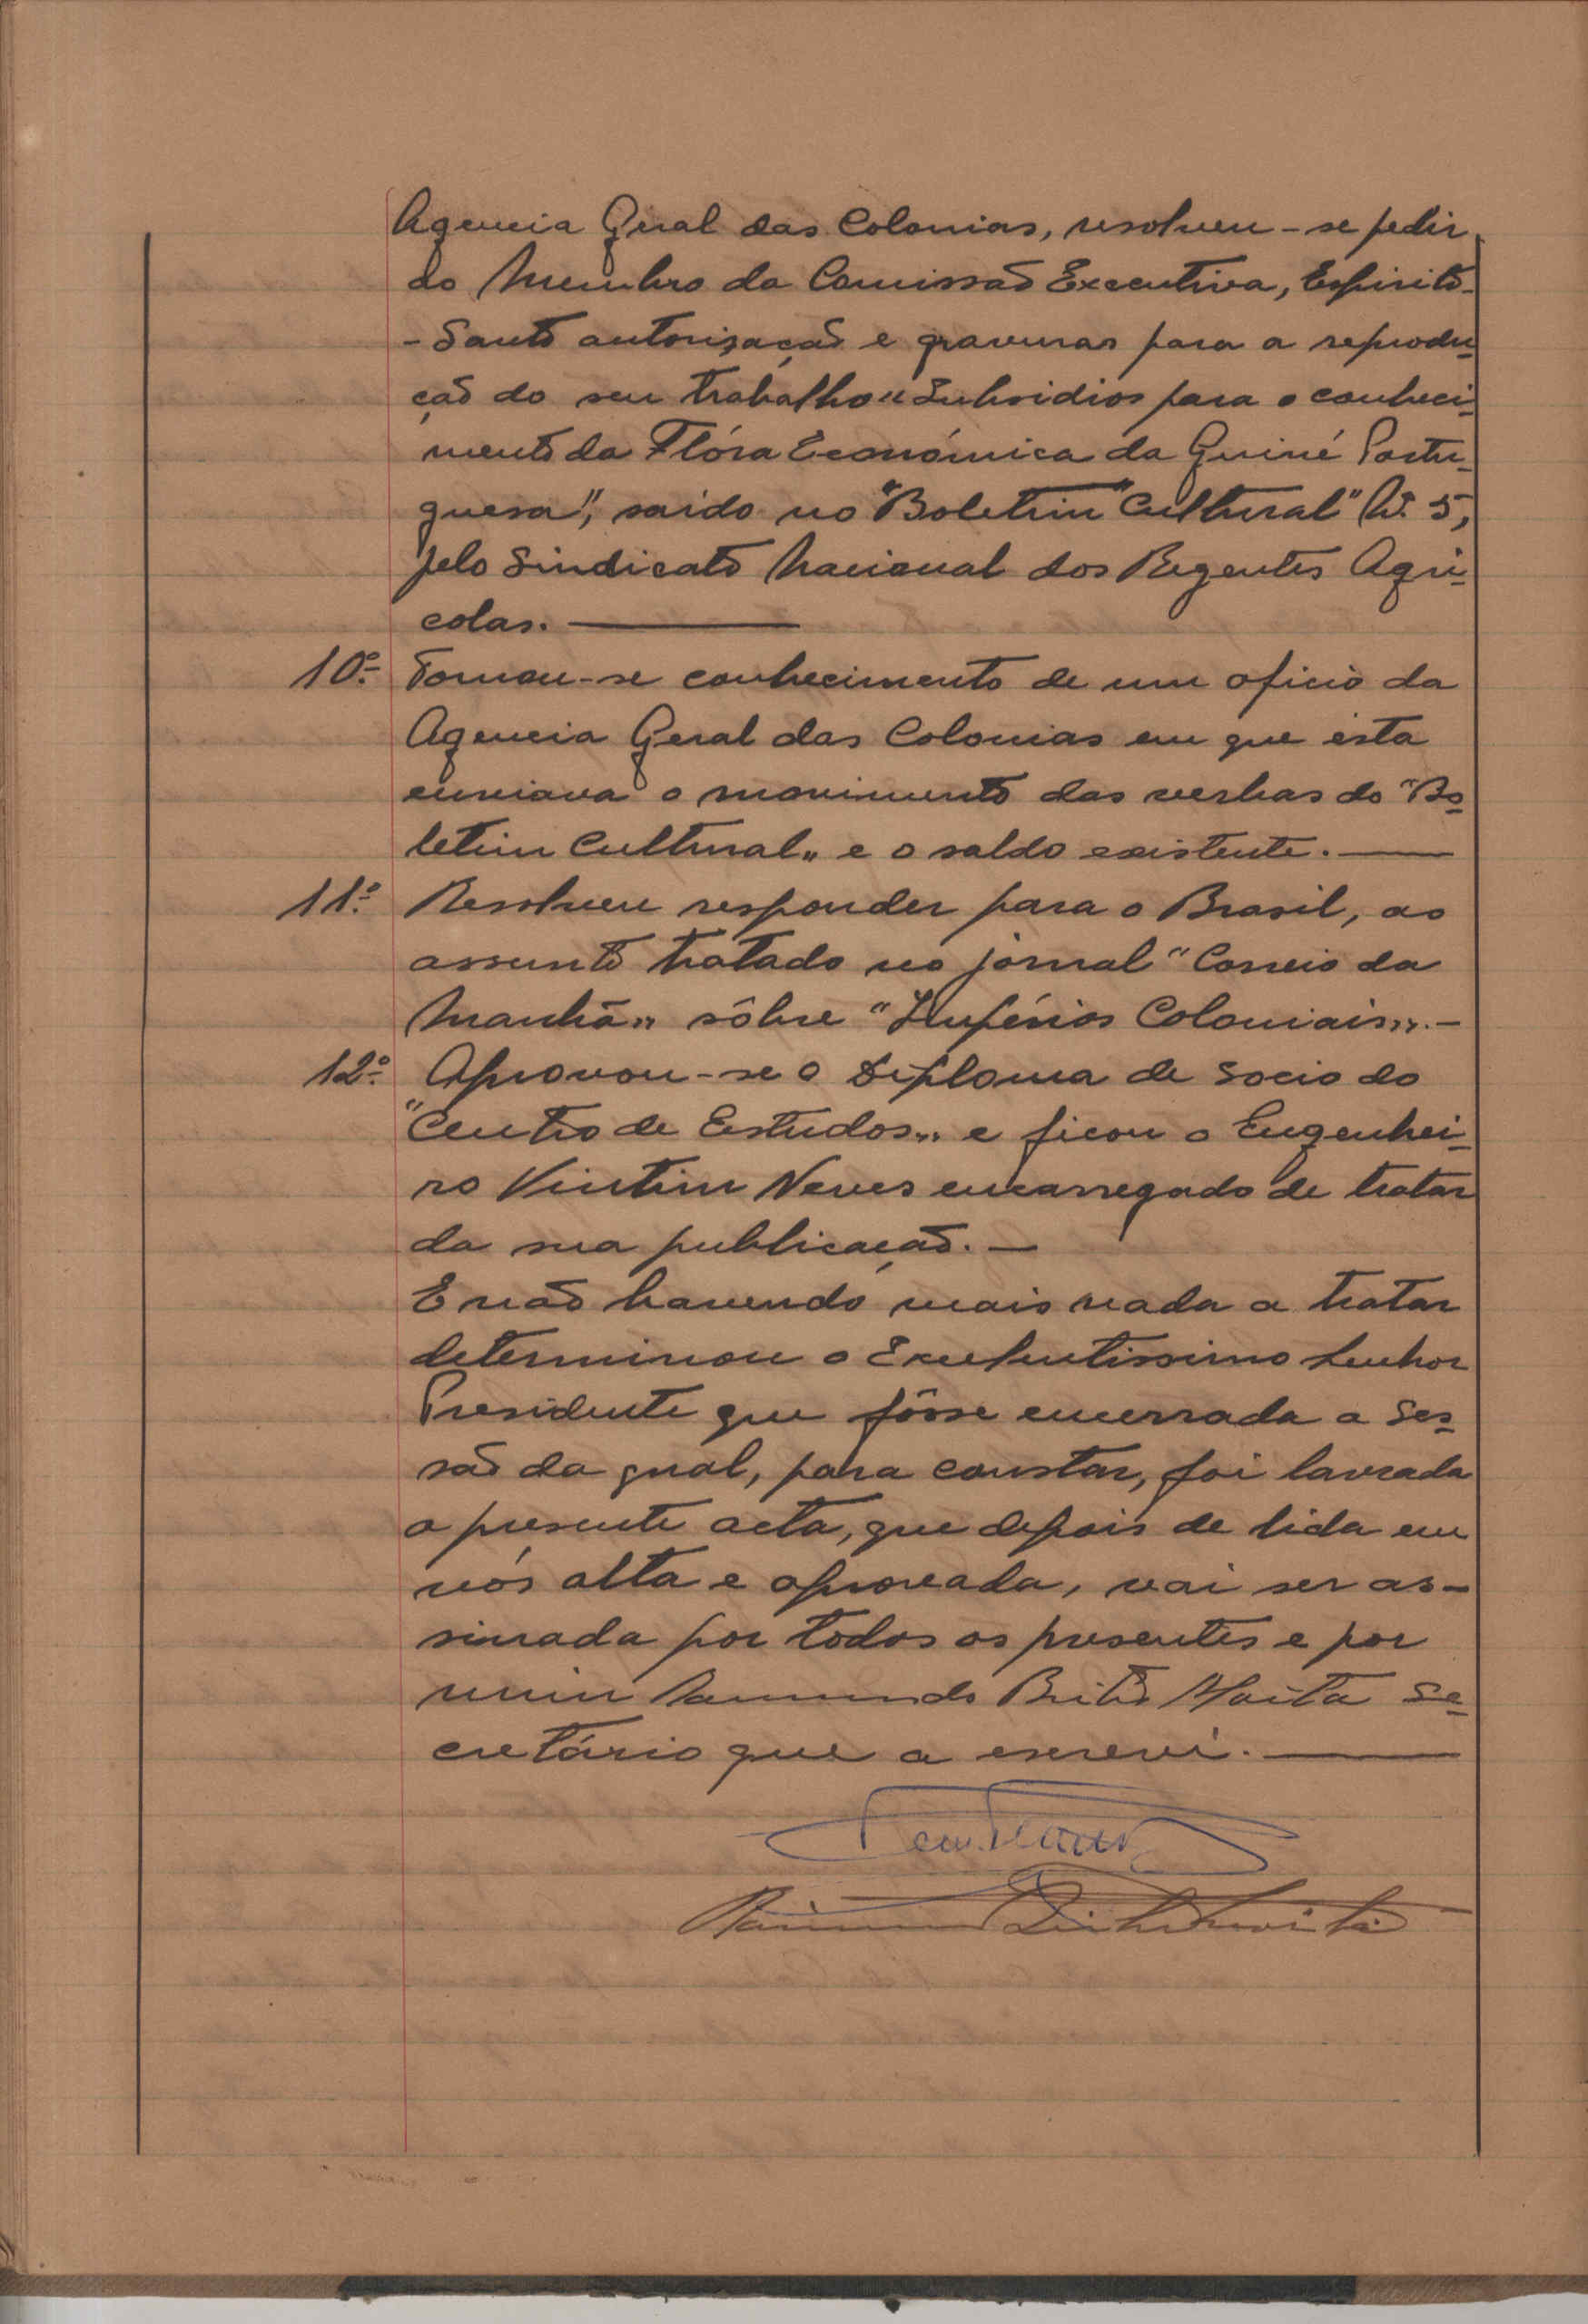 Agencia Geral das Colonias, resolveu-se pedir
do Membro da Comissão Executiva, Espirito-
-Santo autorização e gravuras para a reprodu-
ção do seu trabalho "Subsidios para o conheci-
mento da Flóra Económica da Guiné Portu-
guesa", saido no "Boletim Cultural" Nº 5,
pelo Sindicato Nacional dos Regentes Agri-
colas.
10º- Tomou-se conhecimento de um oficio da
Agencia Geral das Colonias em que esta
enviava o movimento das verbas do "Bo-
letim Cultural" e o saldo existente.
11º- Resolveu responder para o Brasil, ao
assunto tratado no jornal "Correio da
Manhã" sôbre "Impérios Coloniais".-
12º- Aprovou-se o Diploma de Socio do
"Centro de Estudos" e ficou o Engenhei-
ro Vintim Neves encarregado de tratar
da sua publicação.-
E não havendo mais nada a tratar
determinou o Excelentissimo Senhor
Presidente que fôsse encerrada a Ses-
são da qual, para constar, foi lavrada
a presente acta, que depois de lida em
vós alta e aprovada, vai ser as-
sinada por todos os presentes e por
mim Brito Se-
cretário que a escrevi.